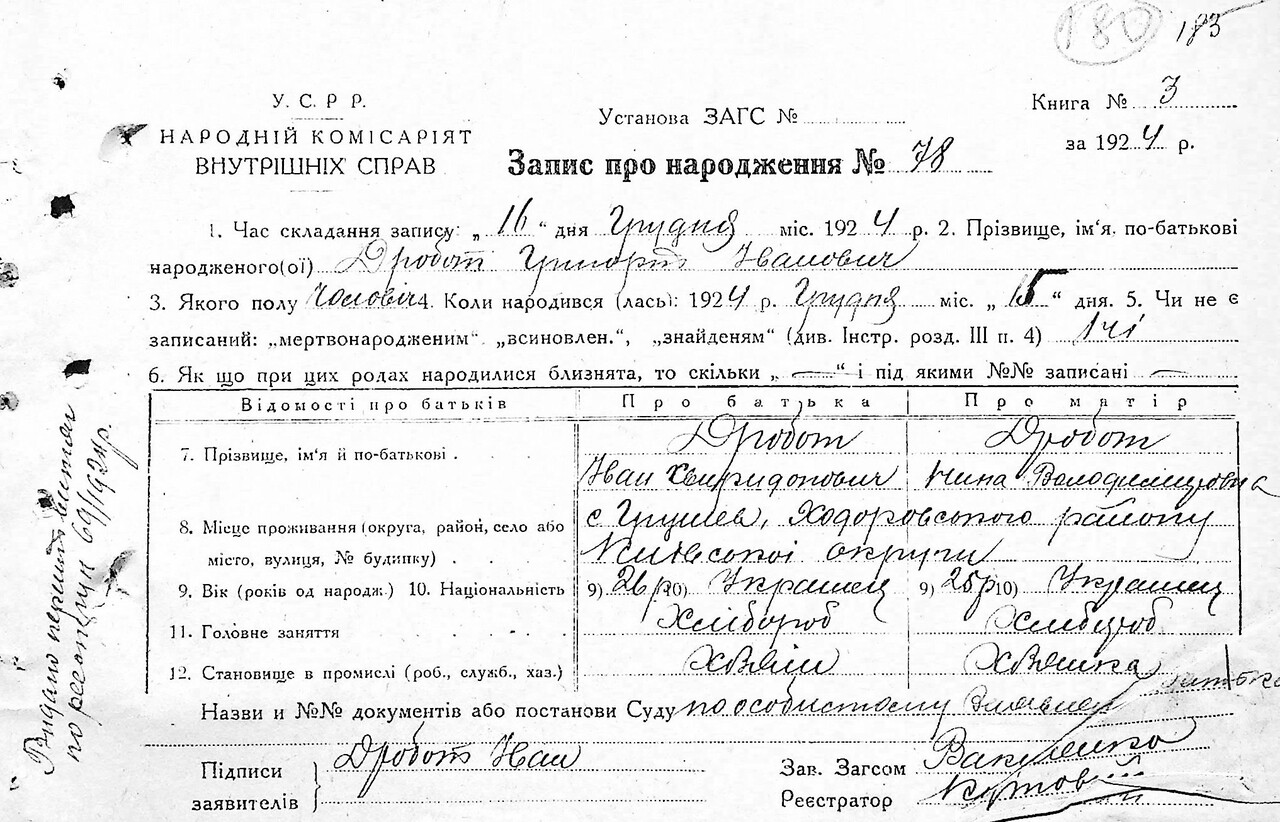 180 185
У. С. Р Р.
НАРОДНІЙ КОМІСАРІЯТ
ВНУТРІШНІХ СПРАВ
Установа ЗАГС №
Книга № 3
за 1924 р.
Запис про народження № 78
1. Час складання запису: „ 16 “ дня Грудня міс. 1924 р. 2. Прізвище, ім'я, по-батькові
народженого(ої) Дробот Григорій Іванович
3. Якого полу Чоловіч 4. Коли народився (лась): 1924 р. Грудня міс. „ 15 “ дня. 5. Чи не є
записаний: „мертвонародженим“, „всиновлен.“, „знайденям“ (див. Інстр. розд. III п. 4)
6. Як що при цих родах народилися близнята, то скільки „ — “ і під якими №№ записані —
Відомості про батьків Про батька Про матір
7. Прізвище, ім'я й по-батькові Дробот Дробот
Іван Володимировна
8. Місце проживання (округа, район, село або с Грушев, Ходоровського району
місто, вулиця, № будинку) Київської округи
9. Вік (років од народж.) 10. Національність 9) 26р 10) Украінец 9) 25р 10) Украінец
11. Головне заняття Хлібороб Хлібороб
12. Становище в промислі (роб., служб., хаз.) Хазяін Хазяйка
Назви и №№ документів або постанови Суду по особистому батька
Підписи
заявителів
Дробот Иван
Зав. Загсом
Реєстратор
Видано перший витяг
по реєстру 69/1924р.